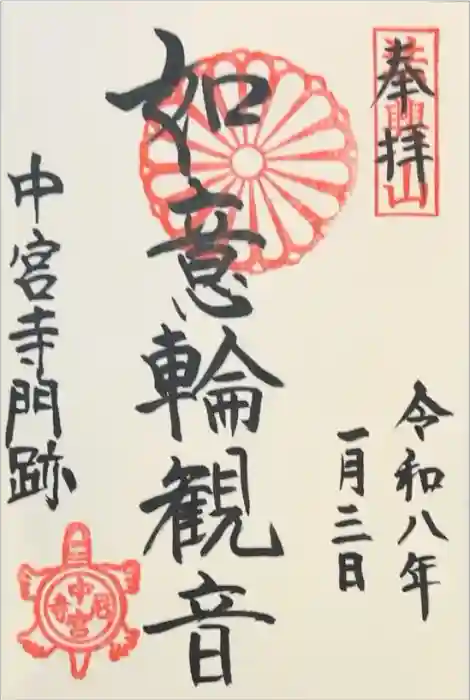 奉拝
令和八年
一月三日
如意輪観音
中宮寺門跡
中宮